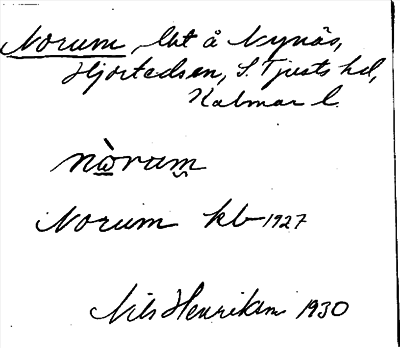 Norum, lht å Nynäs,
Hjortedsen, S. Tjusts hd,
Kalmar l.
nὼram̬
Norum kb 1927
Nils Henrikson 1930